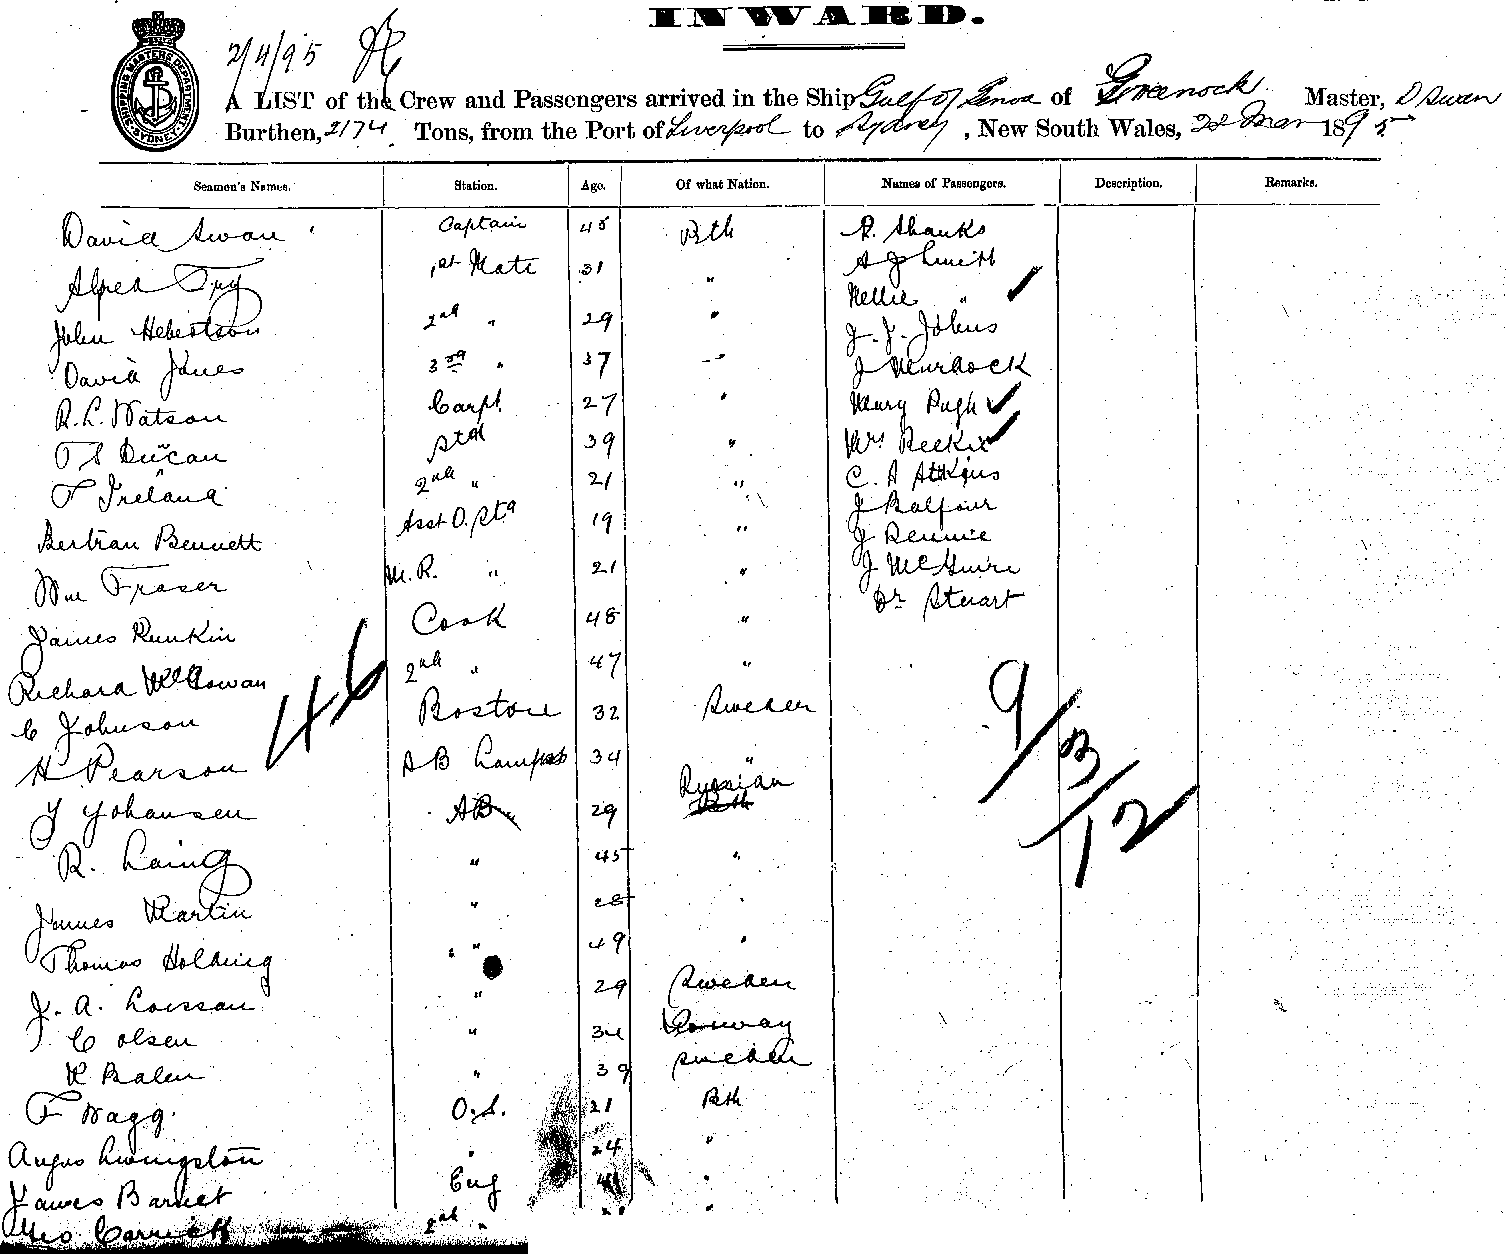 INWARD.
2/4/95
A LIST of the Crew and Passengers arrived in the Ship Gulf of Genoa of Greenock Master, D Swan
Burthen, 2174 Tons, from the Port of Liverpool to Sydney, New South Wales, 28 Mar 1895
Seamen's Names. Station. Age. Of what Nation. Names of Passengers. Description. Remarks.
David Swan Captain 45 Bth R. Shanks
Alfred Fry 1st Mate 31 " A J Smith
Nellie "
John Hebertson 2nd " 29 " J. J. Johns
David Jones 3rd " 37 " J Murdock
R. L. Watson Carpt. 27 " Henry Pugh
T S Duncan Std 39 " Mrs Reekie
F Ireland 2nd " 21 " C. A Atkins
J Balfour
Bertran Bennett Asst O. Std 19 " J Rennie
Wm Fraser M. R. " 21 " J McGuire
Dr Stuart
James Runkin Cook 48 "
Richard McGowan 2nd " 47 "
C Johnson Boston 32 Sweden
H Pearson AB Lamps 34 "
J Yohansen AB 29 Russian
R. Laing " 45 "
James Martin " 28 "
Thomas Holding " 49 "
J. A. Larsson " 29 Sweden
C Olsen " 34 Norway
K Balen " 39 Sweden
F Wagg. O.S. 21 Bth
Angus Livingston " 24 "
James Barnet Eng 41 "
Geo. Carrick 2nd " "
46
9/3/12